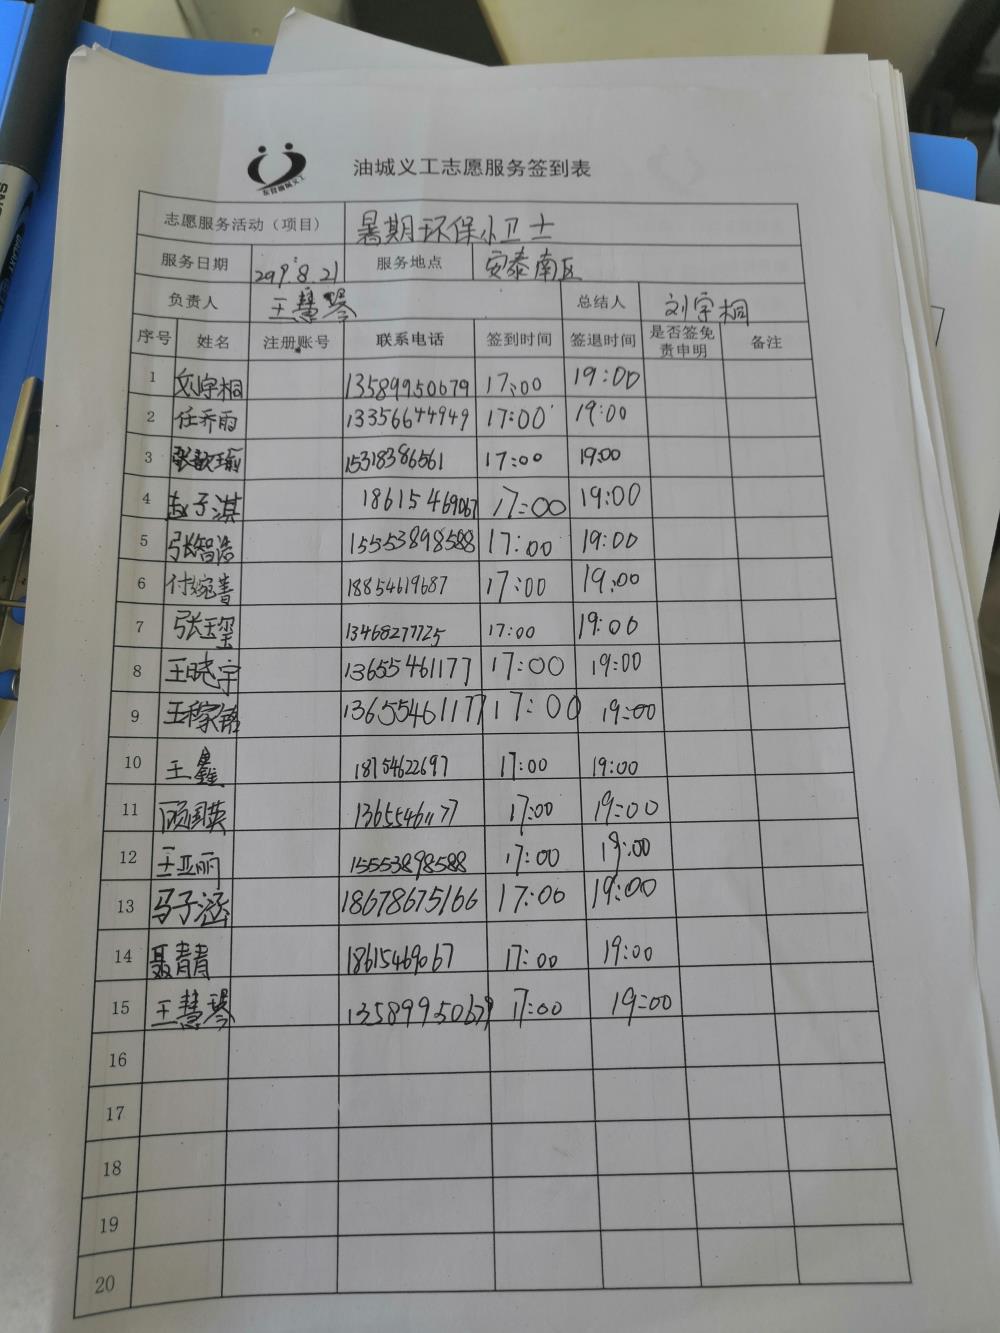 东营油城义工
油城义工志愿服务签到表
志愿服务活动（项目） 暑期环保小卫士
服务日期 2019.8.21 服务地点 安泰南区
负责人 王慧琴 总结人 刘宇桐
序号 姓名 注册账号 联系电话 签到时间 签退时间 是否签免责申明 备注
1 刘宇桐 13589950679 17:00 19:00
2 任乔雨 13356644949 17:00 19:00
3 张歆瑜 15318386561 17:00 19:00
4 赵子淇 18615469067 17:00 19:00
5 张智浩 15553898588 17:00 19:00
6 付婉青 18854619687 17:00 19:00
7 张玉玺 13468277725 17:00 19:00
8 王晓宇 13655461177 17:00 19:00
9 王稼 13655461177 17:00 19:00
10 王鑫 18754622697 17:00 19:00
11 顾国英 13655461177 17:00 19:00
12 王亚丽 15553898588 17:00 19:00
13 马子涵 18678675166 17:00 19:00
14 聂青青 18615469067 17:00 19:00
15 王慧琴 13589950679 17:00 19:00
16
17
18
19
20